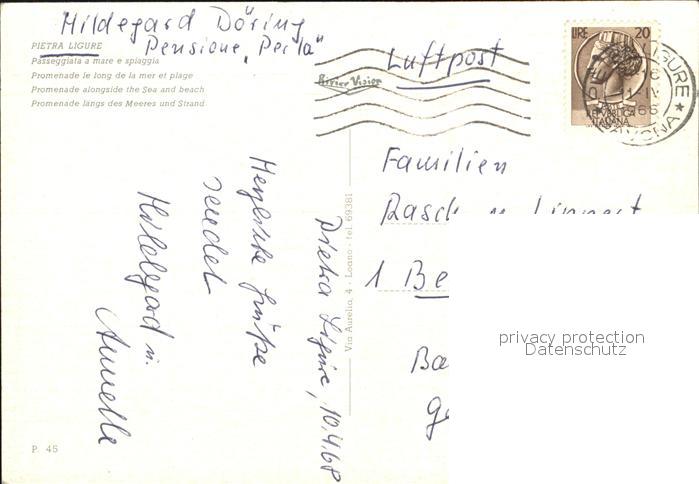 Hildegard Döring
Pensione „Perla“
PIETRA LIGURE
Passeggiata a mare e spiaggia
Promenade le long de la mer et plage
Promenade alongside the Sea and beach
Promenade längs des Meeres und Strand
Luftpost
LIRE 20
REPUBBLICA
ITALIANA
LIGURE
SAVONA
Familien
Rasch u. Lippert
1 Be
Ba
Pietra Ligure, 10.4.68
Herzliche Grüße
sendet
Hildegard u.
Annella
Via Aurelia, 4 - Loano - tel. 69381
P. 45
privacy protection
Datenschutz